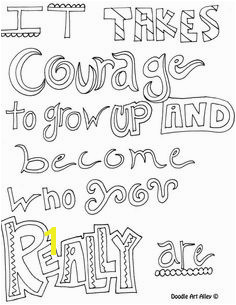 IT TAKES
Courage
to grow up AND
become
who you
REALLY are
1
Doodle Art Alley ©